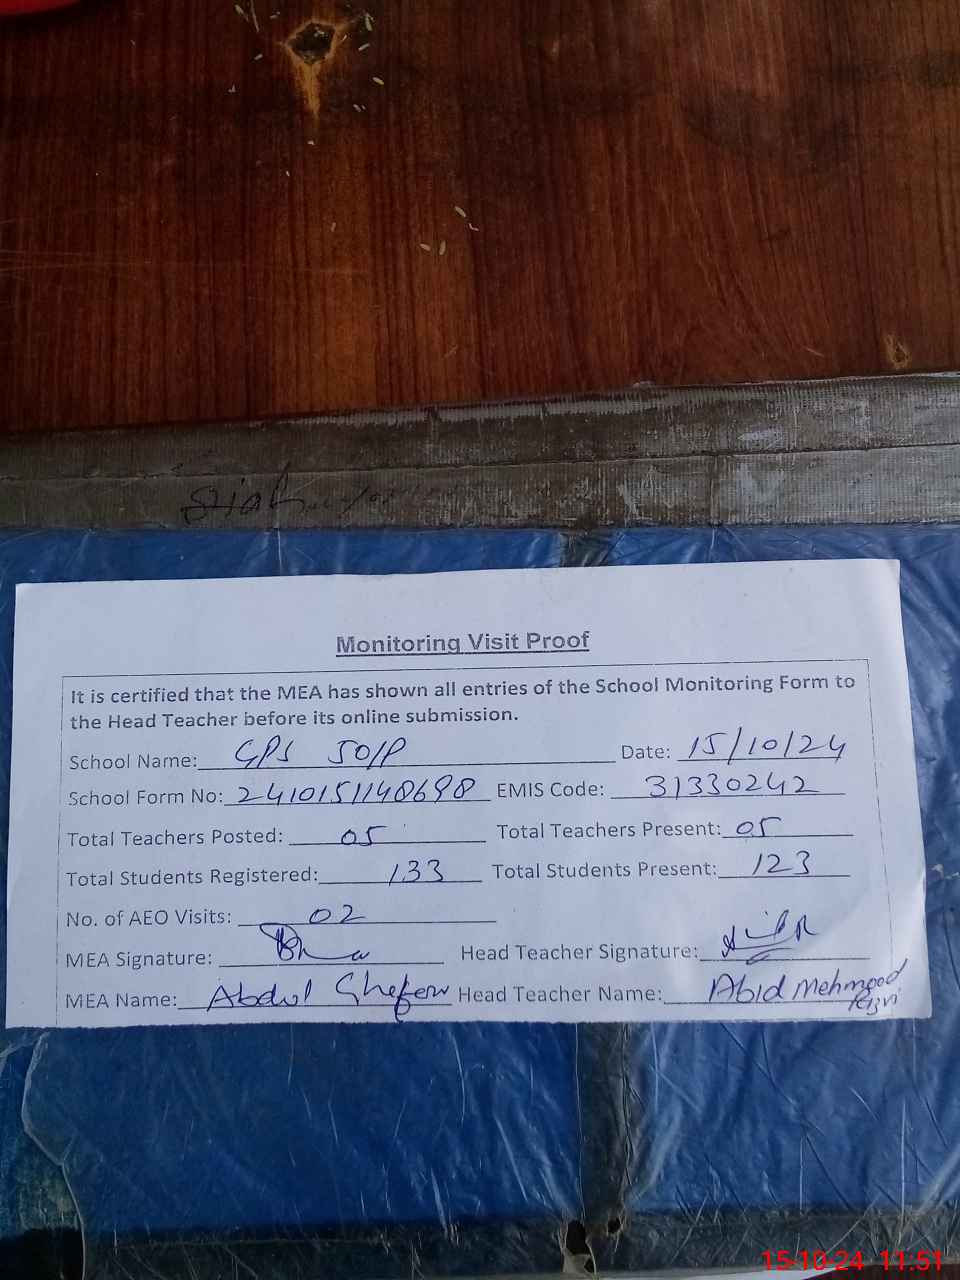 Monitoring Visit Proof
It is certified that the MEA has shown all entries of the School Monitoring Form to
the Head Teacher before its online submission.
School Name: GPS 50/P Date: 15/10/24
School Form No: 2410151148698 EMIS Code: 31330242
Total Teachers Posted: 05 Total Teachers Present: 05
Total Students Registered: 133 Total Students Present: 123
No. of AEO Visits: 02
MEA Signature: Head Teacher Signature:
MEA Name: Abdul Head Teacher Name: Abid Mehmood
Rizvi
15-10-24 11:51